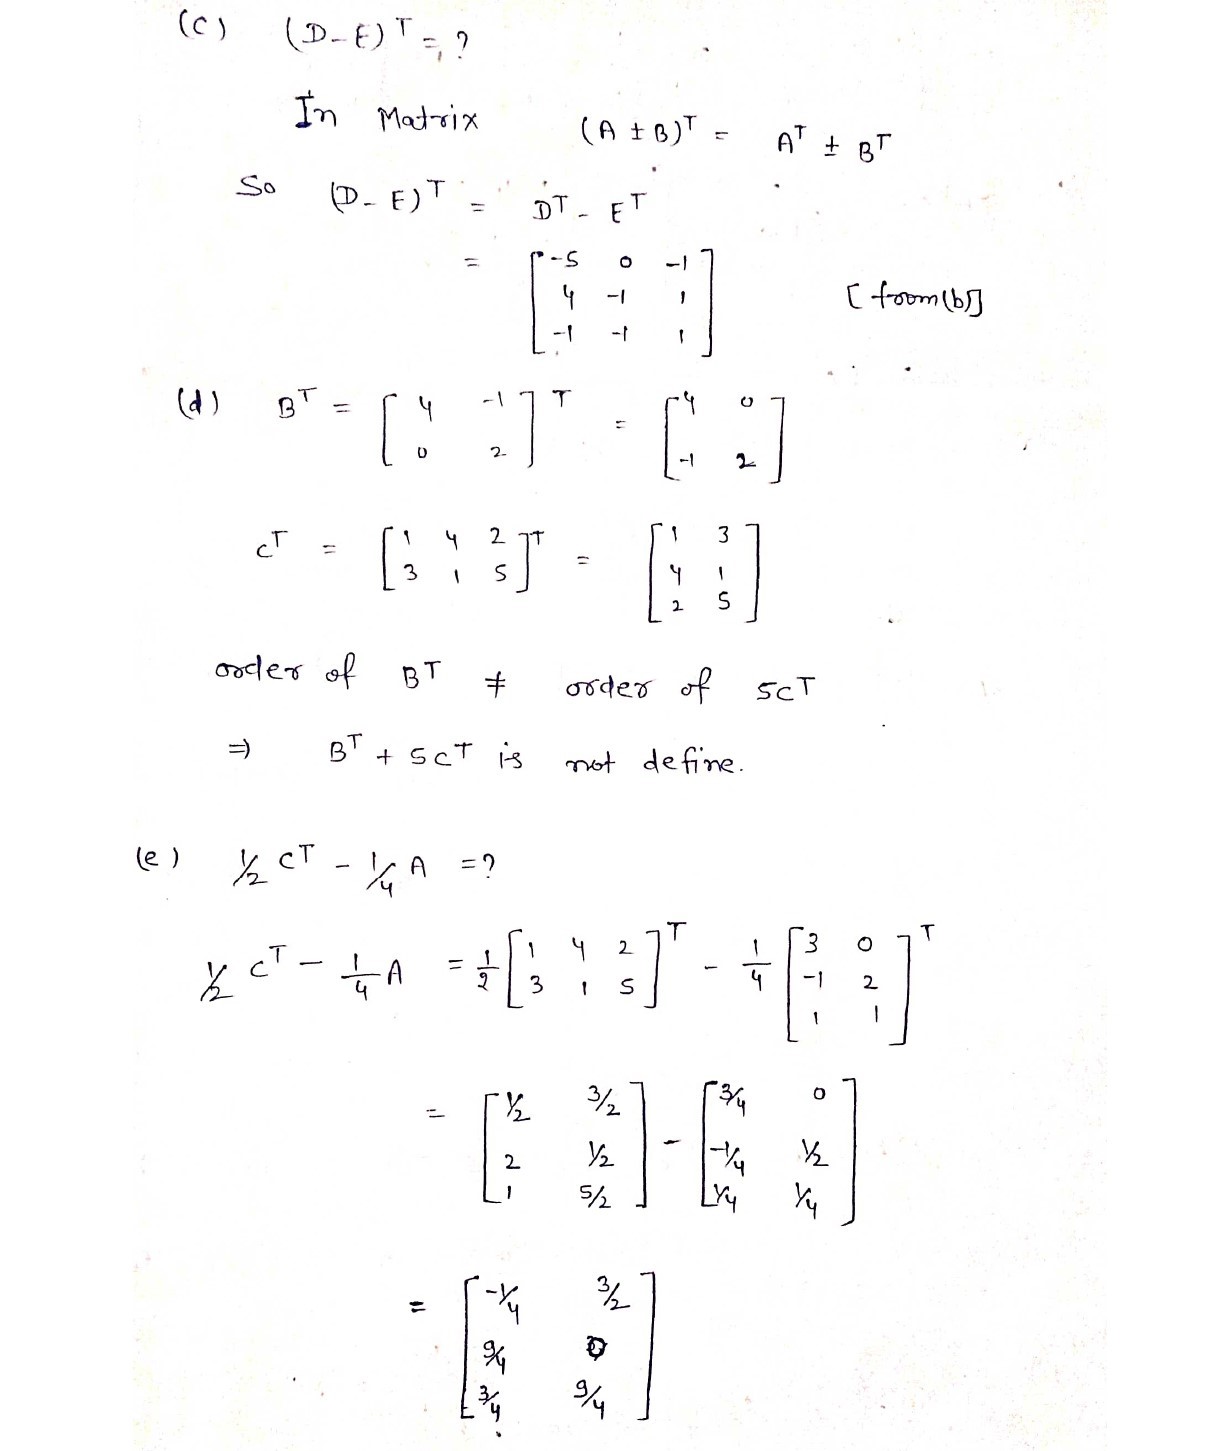 (c) (D-E)ᵀ = ?
In Matrix (A ± B)ᵀ = Aᵀ ± Bᵀ
So (D-E)ᵀ = Dᵀ - Eᵀ
= [ -5 0 -1
4 -1 1
-1 -1 1 ] [from(b)]
(d) Bᵀ = [ 4 -1
0 2 ]ᵀ = [ 4 0
-1 2 ]
cᵀ = [ 1 4 2
3 1 5 ]ᵀ = [ 1 3
4 1
2 5 ]
order of Bᵀ ≠ order of 5Cᵀ
⇒ Bᵀ + 5Cᵀ is not define.
(e) 1/2 Cᵀ - 1/4 A = ?
1/2 Cᵀ - 1/4 A = 1/2 [ 1 4 2
3 1 5 ]ᵀ - 1/4 [ 3 0
-1 2
1 1 ]ᵀ
= [ 1/2 3/2
2 1/2
1 5/2 ] - [ 3/4 0
-1/4 1/2
1/4 1/4 ]
= [ -1/4 3/2
9/4 0
3/4 9/4 ]